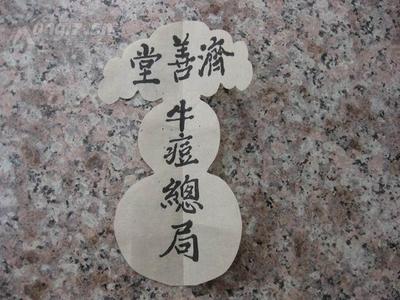 濟善堂
牛痘總局